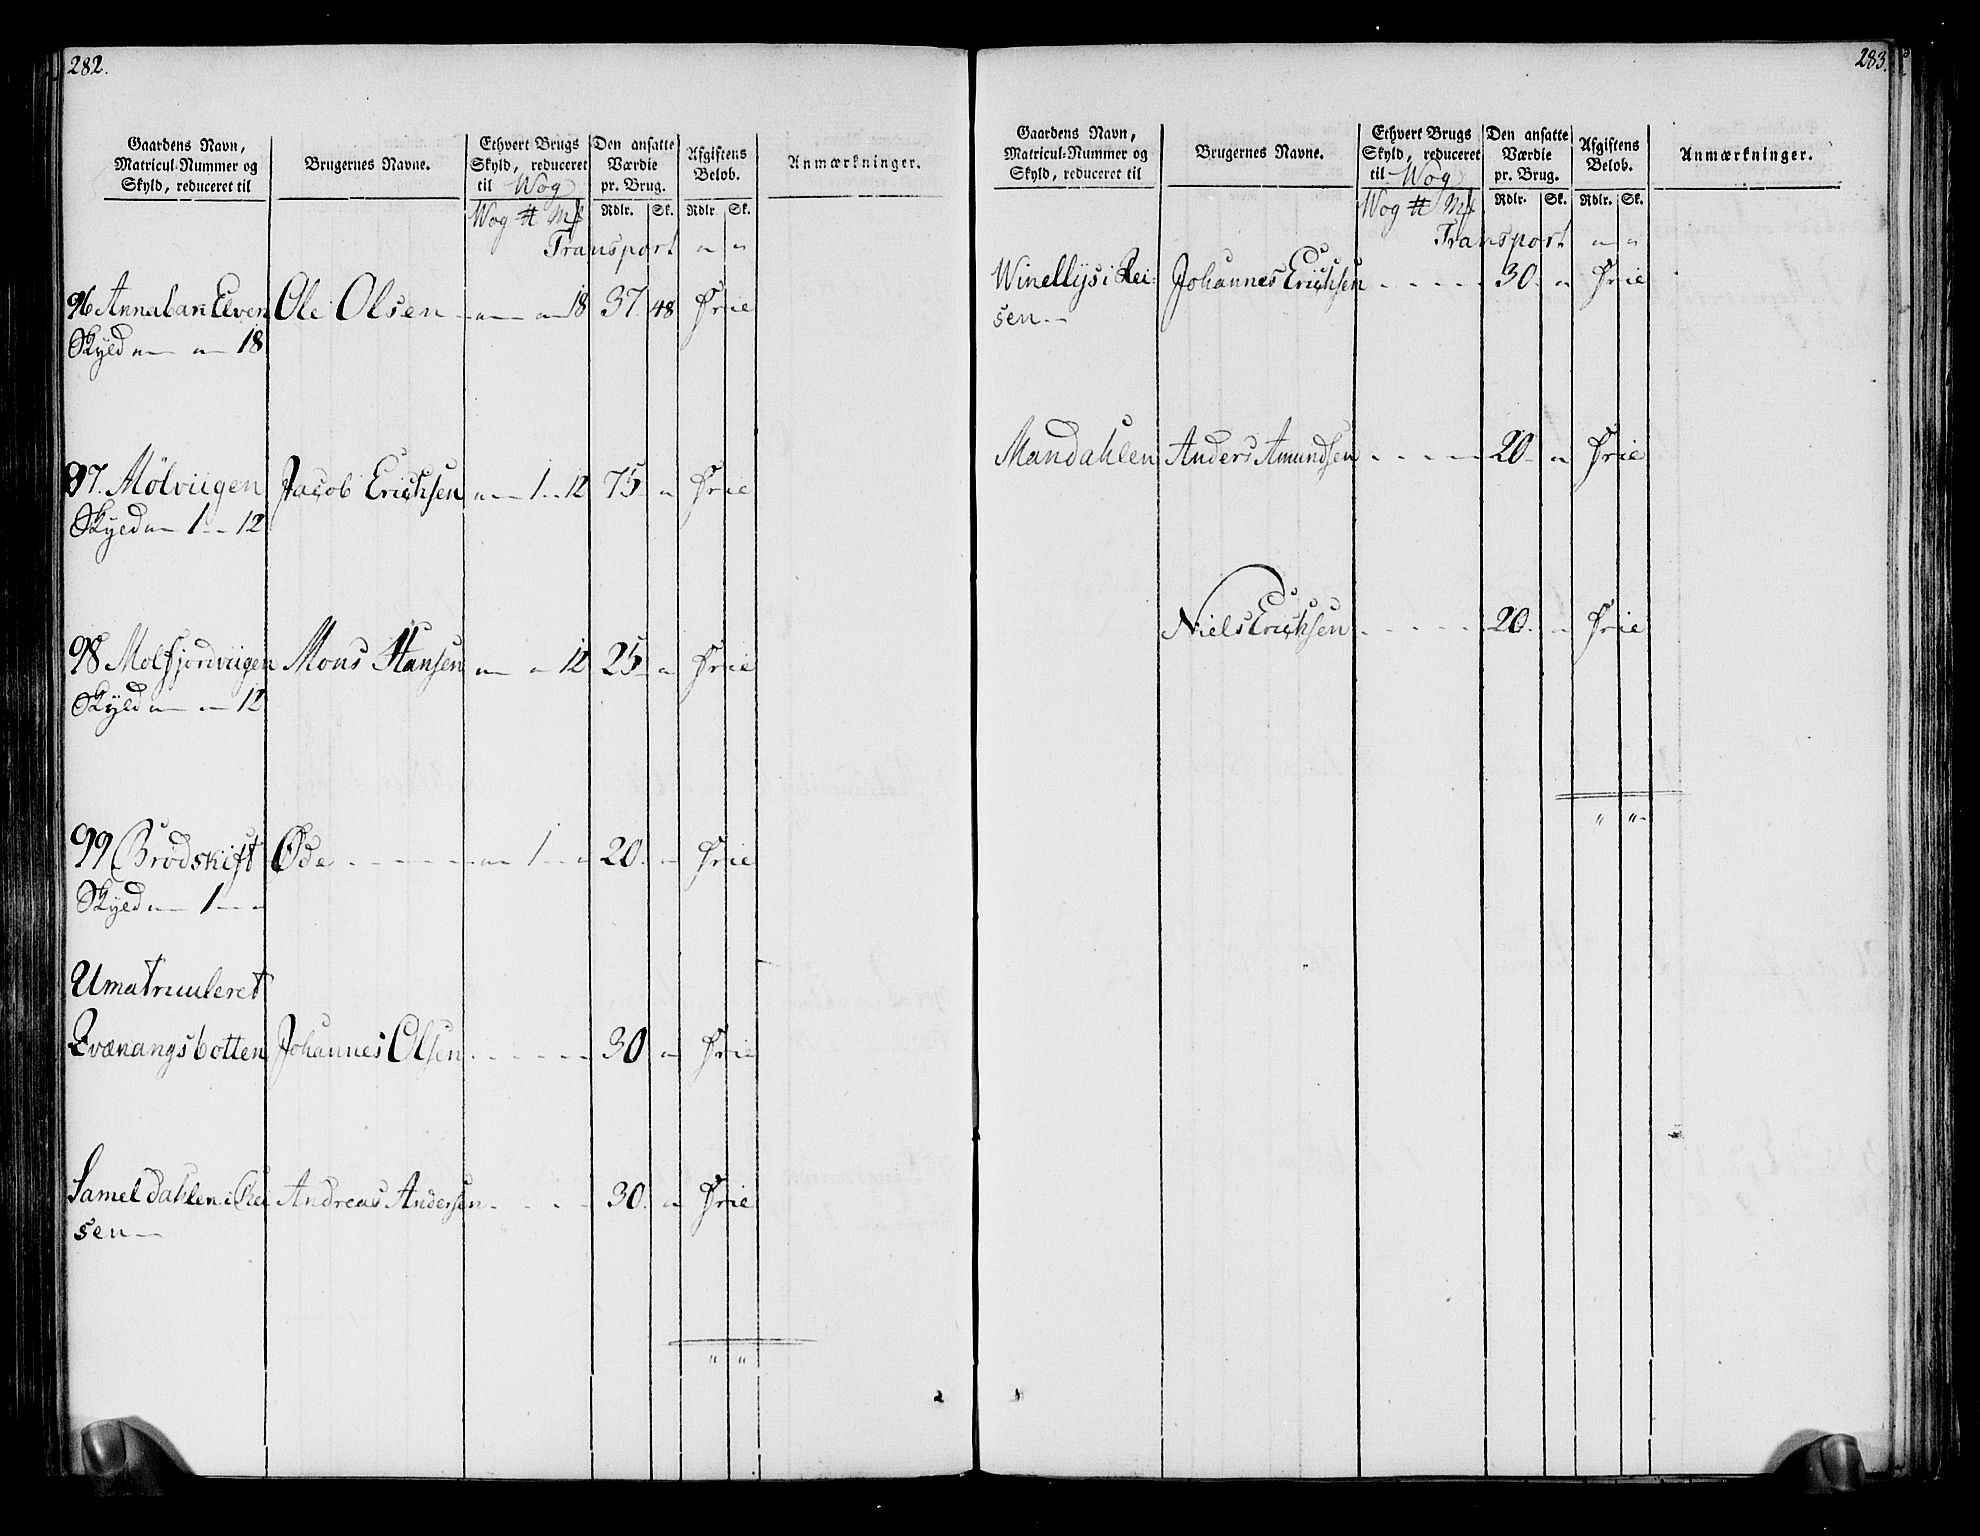 282.
Gaardens Navn, Matricul-Nummer og Skyld, reduceret til | Brugernes Navne. | Ethvert Brugs Skyld, reduceret til Wog | Den ansatte Værdie pr. Brug. | Afgiftens Belob. | Anmærkninger.
Wog ℔ Mk | Rdlr. | Sk. | Rdlr. | Sk.
Transport " "
96 Annabarn Elven Ole Olsen " " 18 37. 48 Frie
Skyld " " 18
97. Mölviigen Jacob Erichsen " 1 12 75 " Frie
Skyld " 1 12
98 Molfjordviigen Mons Hansen " " 12 25 " Frie
Skyld " " 12
99 Brødskift Øde " 1 " 20. " Frie
Skyld " 1 "
Umatriculeret
Qvænangsbotten Johannes Olsen 30 " Frie
Samel dahlen i Rei Andreas Andersen 30. " Frie
sen
" "
283.
Gaardens Navn, Matricul-Nummer og Skyld, reduceret til | Brugernes Navne. | Ethvert Brugs Skyld, reduceret til Wog | Den ansatte Værdie pr. Brug. | Afgiftens Belob. | Anmærkninger.
Wog ℔ Mk | Rdlr. | Sk. | Rdlr. | Sk.
Transport " "
Winellys i Rei- Johannes Erichsen 30. " Frie
sen
Mandahlen Anders Amundsen 20 " Frie
Niels Erichsen 20. " Frie
" "